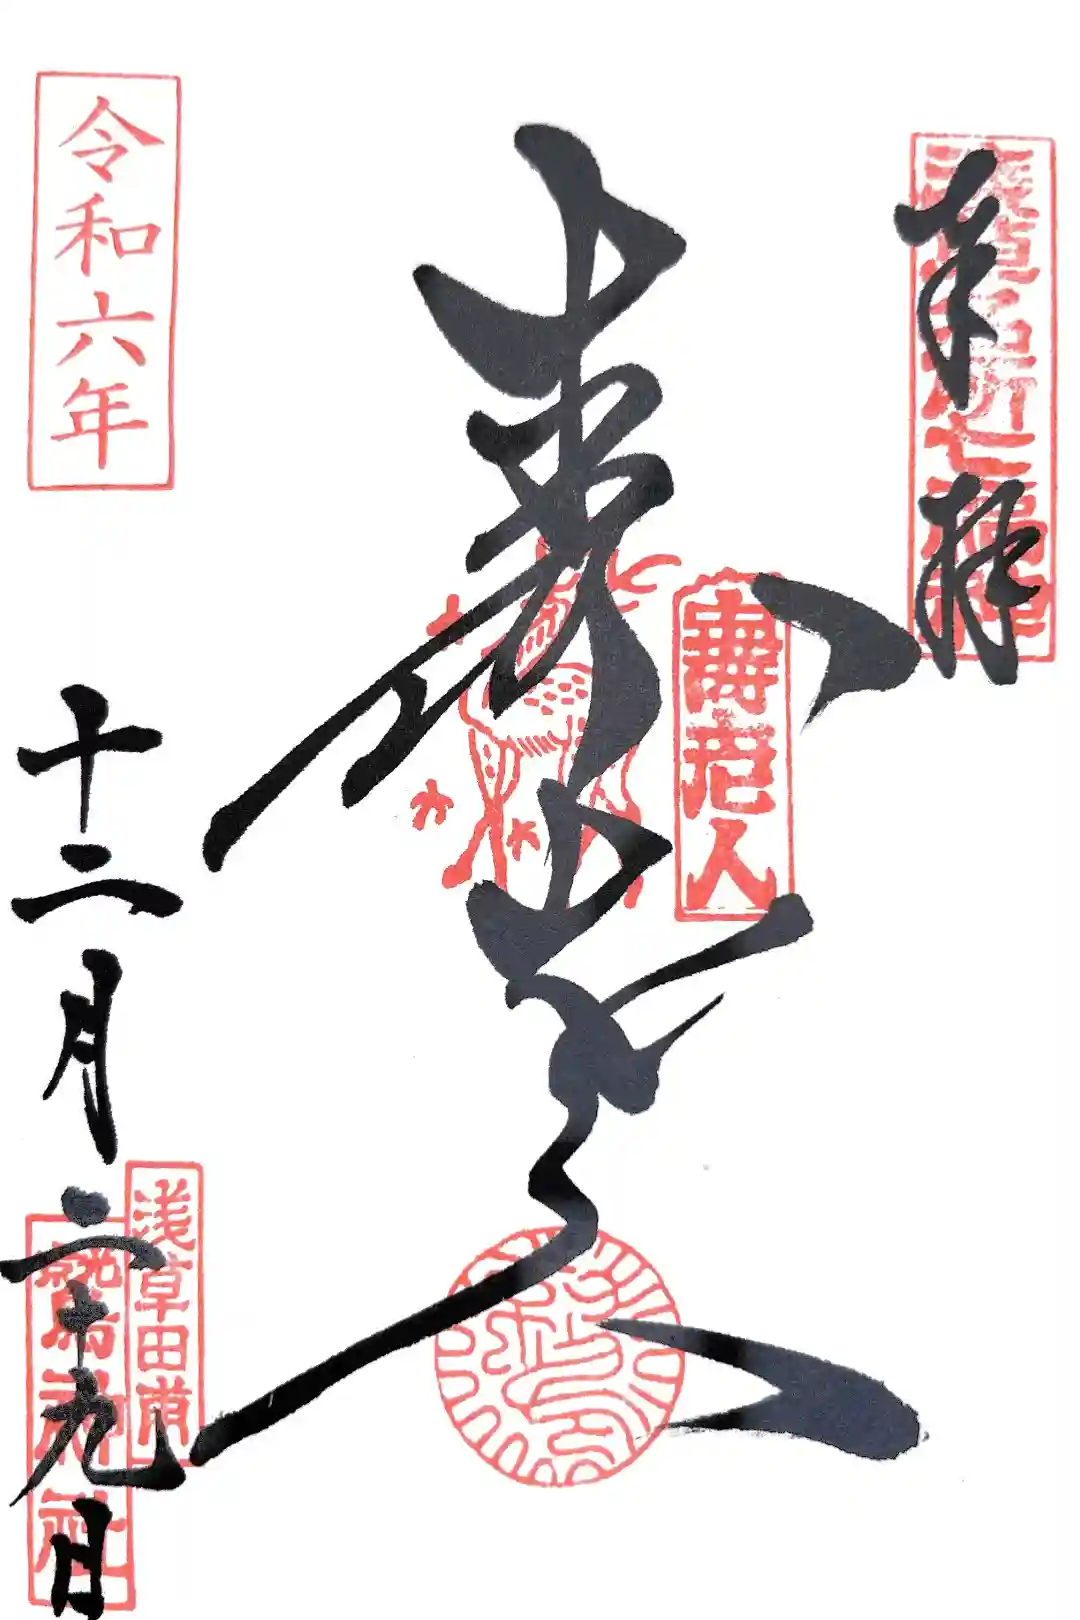 奉拝
浅草名所七福神
寿老人
寿老人
令和六年
十二月二十九日
浅草田甫
鷲神社